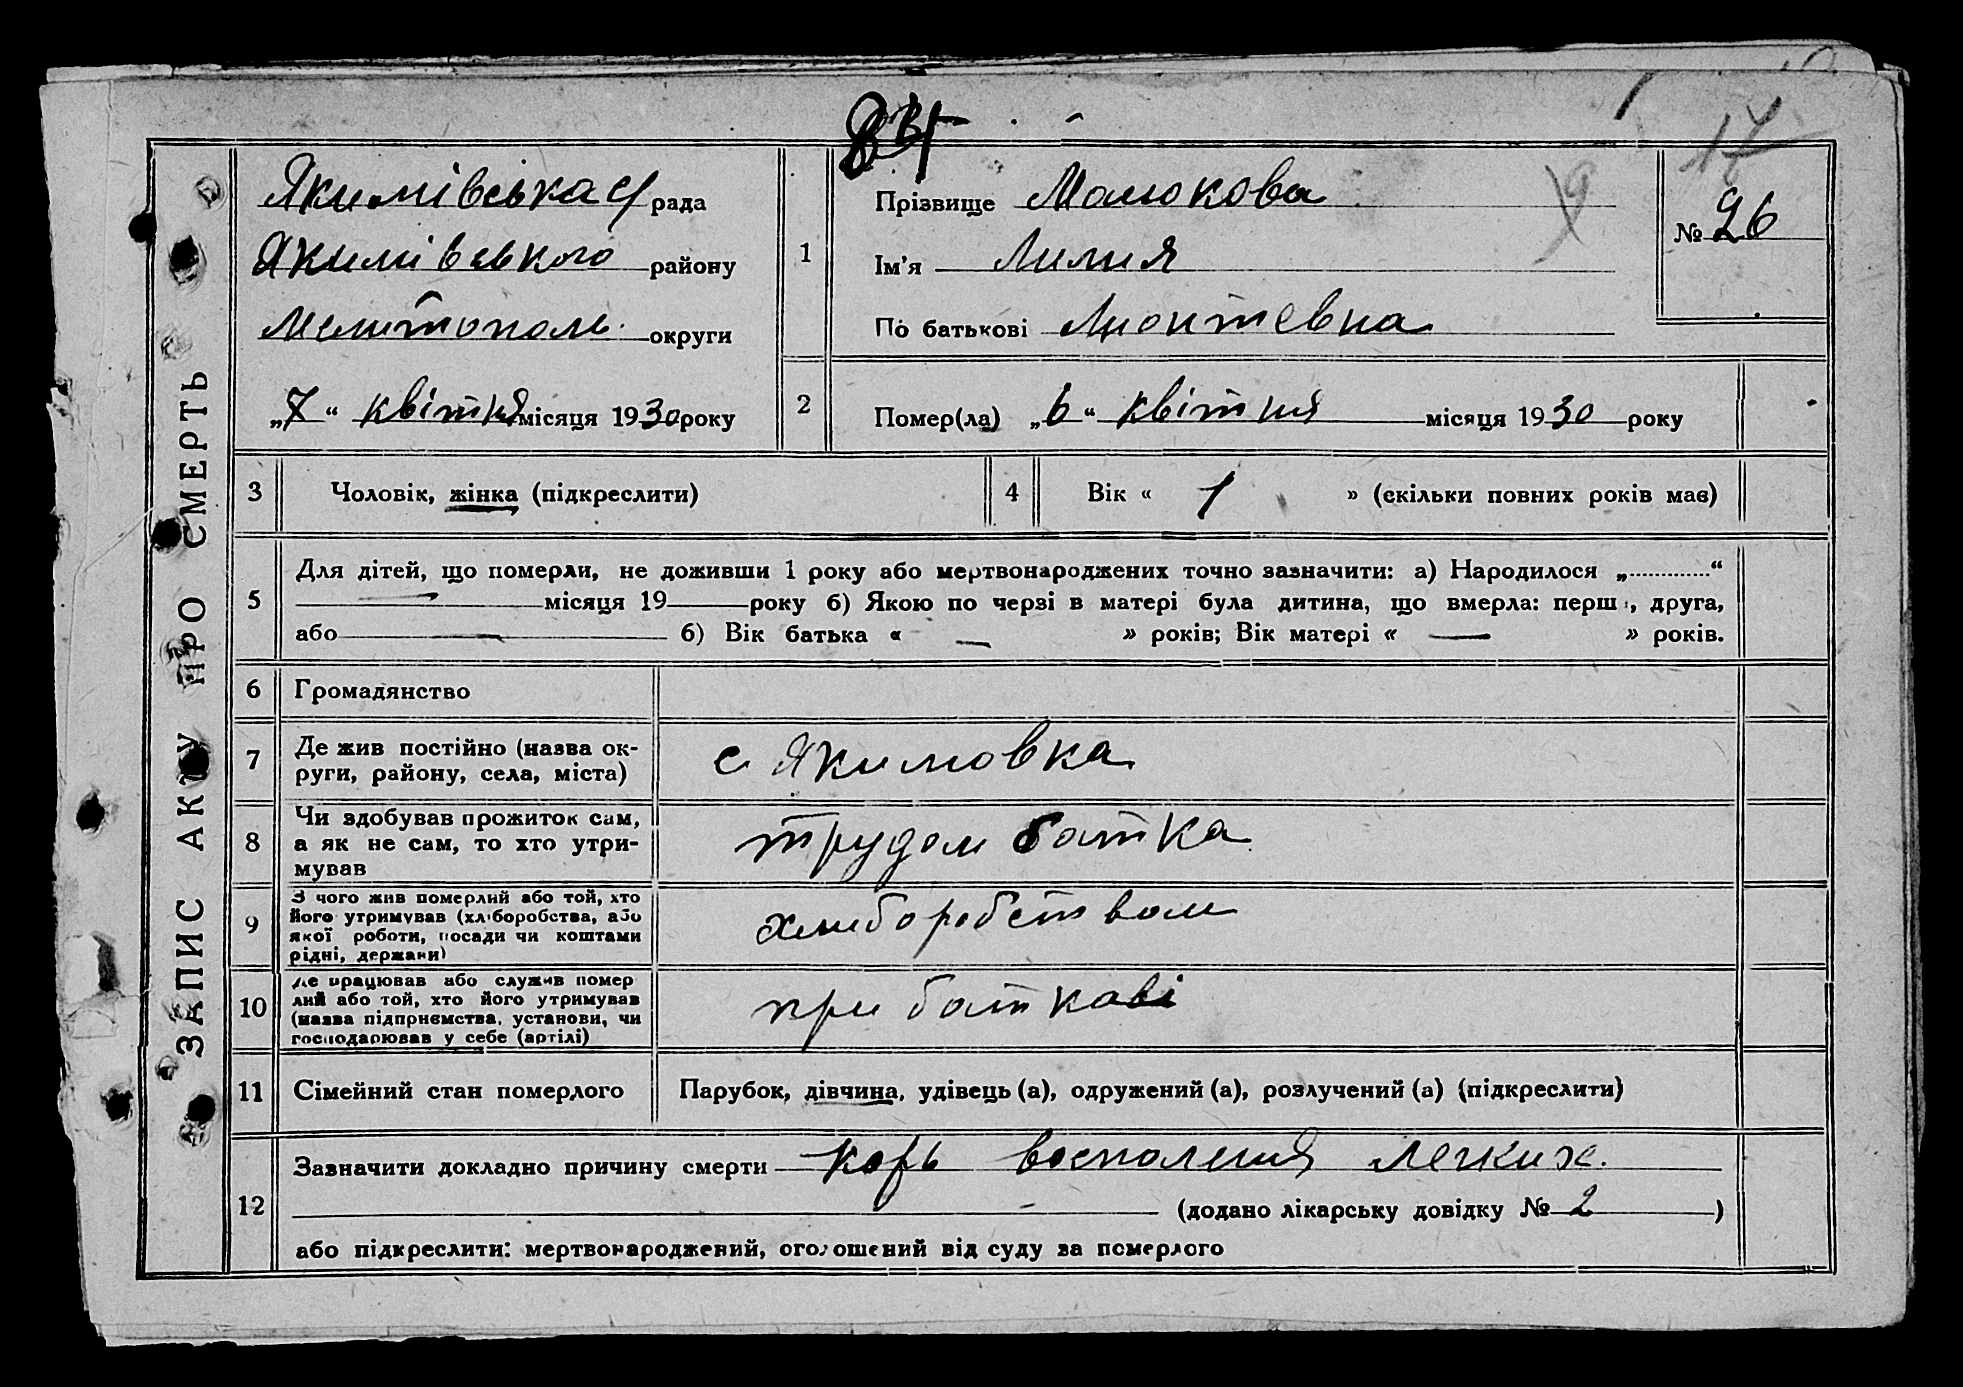 17
ЗАПИС АКТУ ПРО СМЕРТЬ
Якимівська с/рада
Якимівського району
Мелитополь округи
„7“ квітня місяця 1930 року
1
Прізвище Малюкова
Ім’я Лилия
По батькові Лионтевна
№ 26
2
Помер(ла) „6“ квітня місяця 1930 року
3 Чоловік, жінка (підкреслити)
4 Вік « 1 » (скільки повних років має)
5
Для дітей, що померли, не доживши 1 року або мертвонароджених точно зазначити: а) Народилося „ “
— місяця 19 року б) Якою по черзі в матері була дитина, що вмерла: перша, друга,
або — б) Вік батька « — » років; Вік матері « — » років.
6 Громадянство
7
Де жив постійно (назва ок-
руги, району, села, міста)
с Якимовка
8
Чи здобував прожиток сам,
а як не сам, то хто утри-
мував
трудом батка
9
З чого жив померлий або той, хто
його утримував (хліборобства, або
якої роботи, посади чи коштами
рідні, держави)
хлиборобством
10
Де працював або служив помер
лий або той, хто його утримував
(назва підприємства, установи, чи
господарював у себе (артілі)
при баткові
11 Сімейний стан померлого
Парубок, дівчина, удівець (а), одружений (а), розлучений (а) (підкреслити)
12
Зазначити докладно причину смерти корь воспаления легких.
(додано лікарську довідку № 2 )
або підкреслити: мертвонароджений, оголошений від суду за померлого